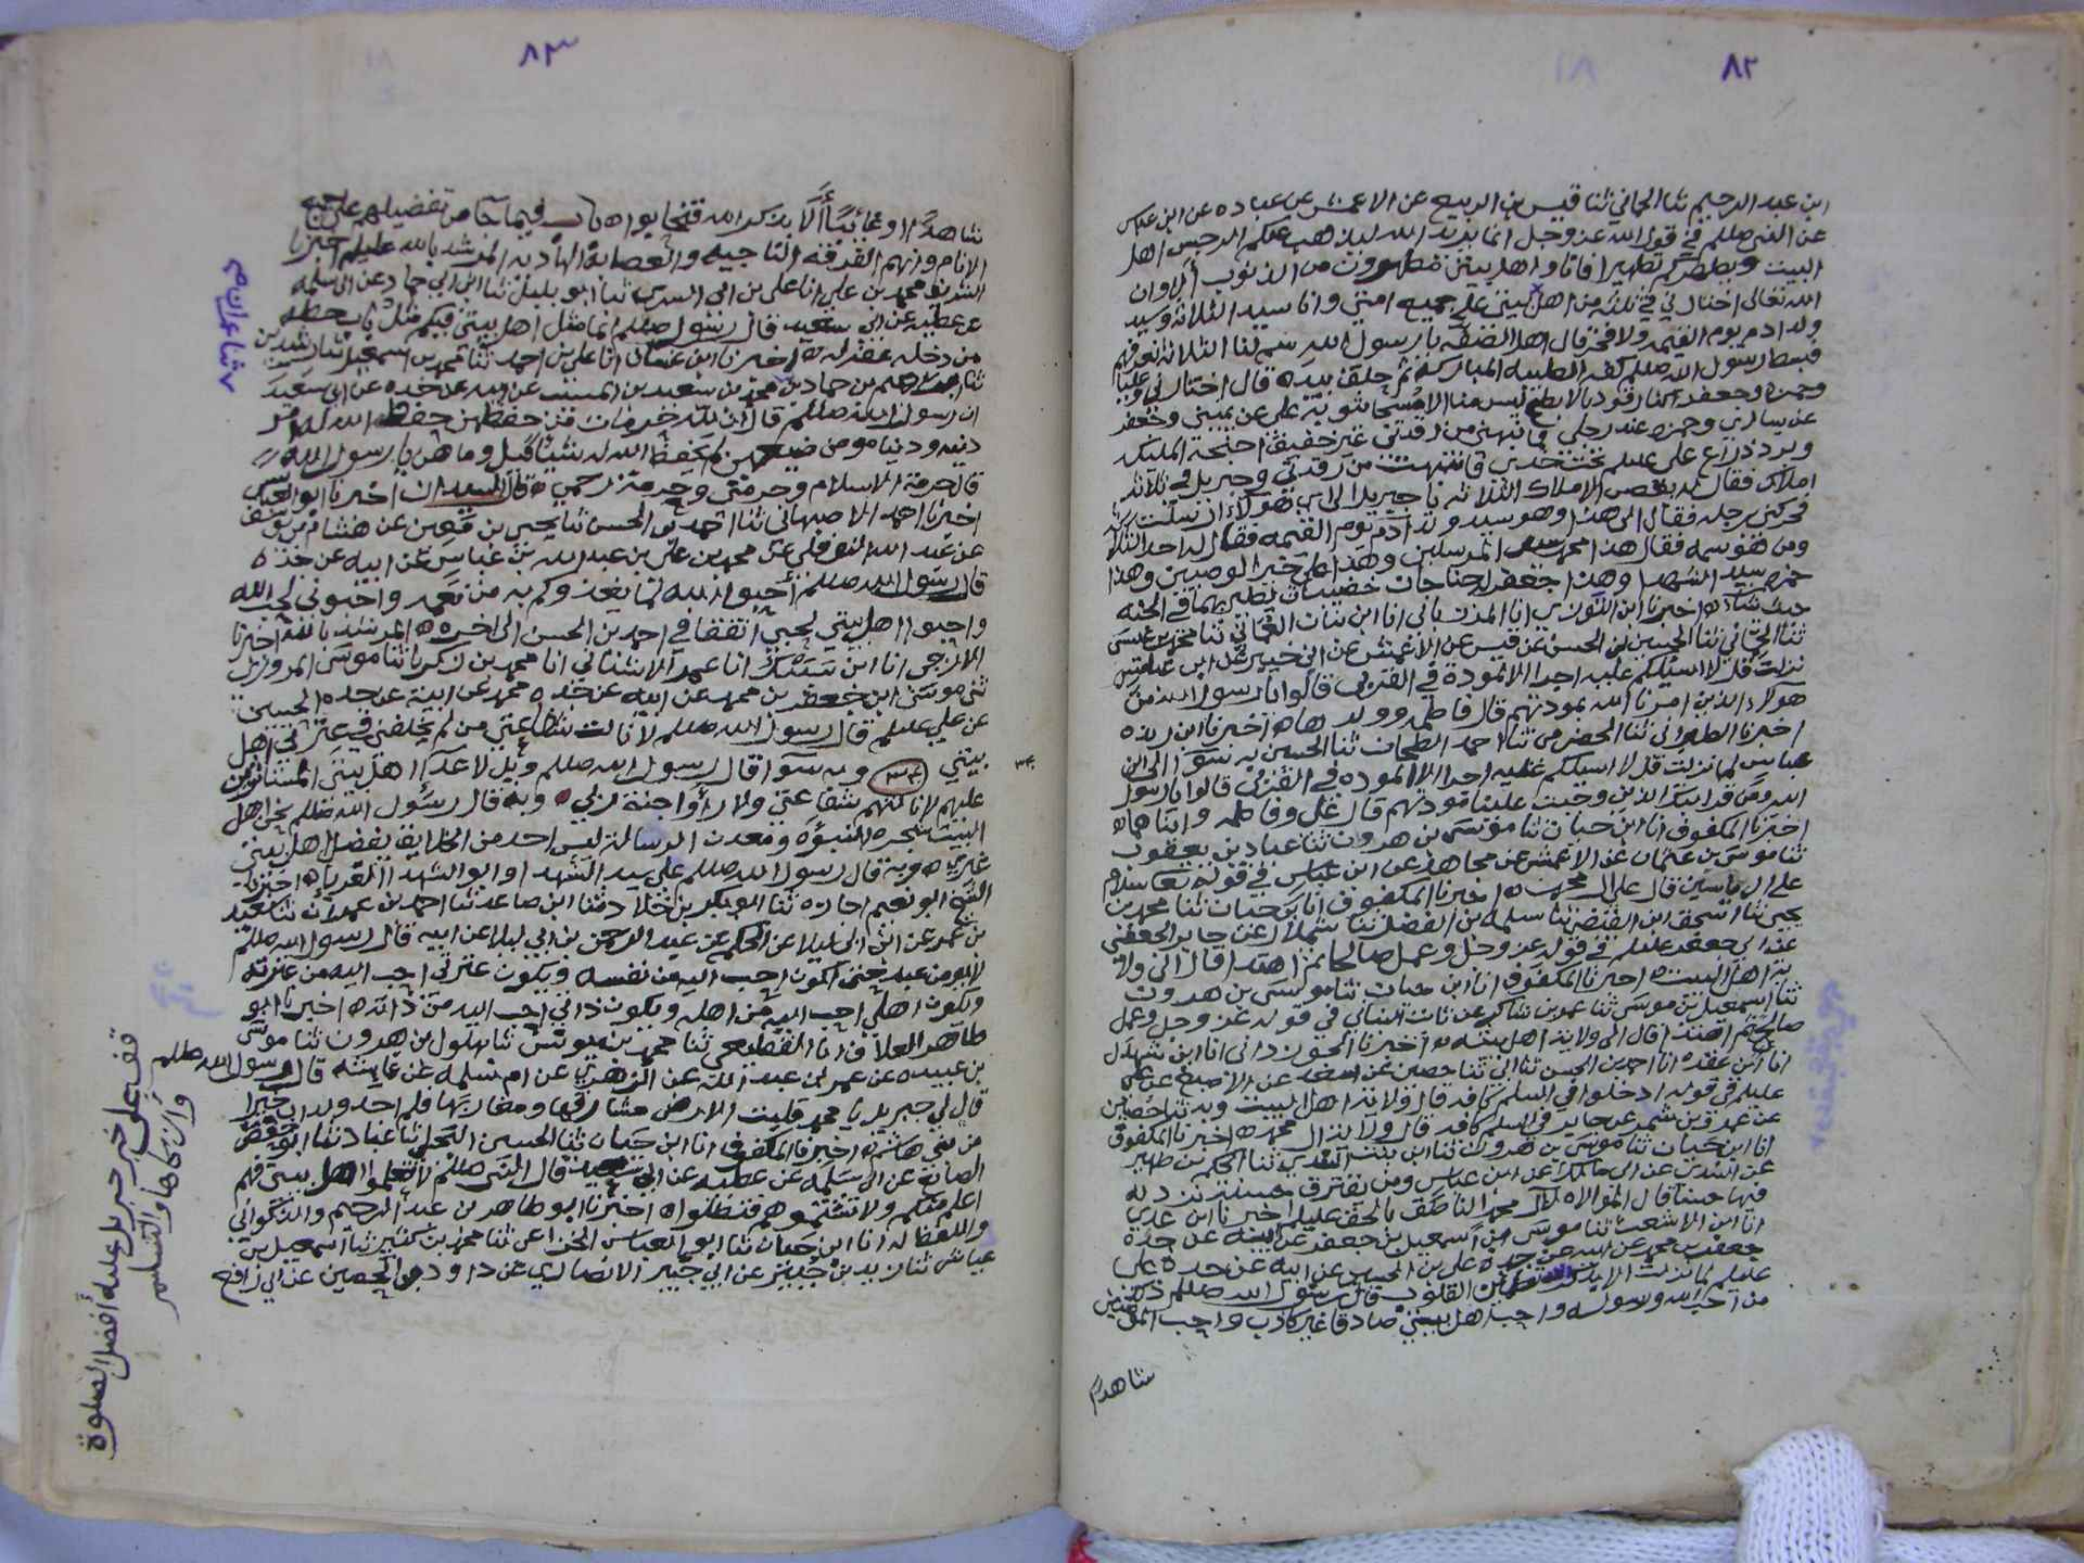 ٨٢
ابن عبد الرحيم ثنا الحماني ثنا قيس بن الربيع عن الاعمش عن عباده عن ابن عباس
عن النبي صللم في قول الله عز وجل انما يريد الله ليذهب عنكم الرجس اهل
البيت ويطهركم تطهيرا فانا واهل بيتي مطهرون من الذنوب الا وان
الله تعالى اختارني في ثلثه من اهل بيتي على جميع امتي وانا سيد الثلاثة وسيد
ولد ادم يوم القيمه ولا فخر قال اهل الصفه يا رسول الله سم لنا الثلاثة نعرفهم
فبسط رسول الله صللم كفه الطيبه المباركه ثم حلق بيده قال اختارني وعليا
وحمزه وجعفر كنا رقود بالابطح ليس منا الا مسجا بثوبه علي عن يميني وجعفر
عن يساري وحمزه عند رجلي فما نبهني من رقدتي غير خفيق اجنحة الملئكه
وبرد ذراع علي عليلم تحت خدي فانتبهت من رقدتي وجبريل في ثلاثة
املاك فقال له بعض الاملاك الثلاثه يا جبريل الى اي هولاء ارسلت
فحركني برجله فقال الى هذا وهو سيد ولد آدم يوم القيمه فقال له احد الثلاثة
ومن هو سمه فقال هذا محمد سيد المرسلين وهذا علي خير الوصيين وهذا
حمزه سيد الشهدا وهذا جعفر له جناحان خضيبان يطير بهما في الجنه
حيث شاء ه اخبرنا ابن التوزي انا المرزباني انا ابن بنات العماني ثنا محمد بن عيسى
ثنا الحماني ثنا الحسين بن الحسن عن قيس عن الاعمش عن ابن جبير عن ابن عباس
نزلت قل لا اسيلكم عليه اجرا الا المودة في القربى قالوا يا رسول الله من
هولاء الذين امرنا الله بمودتهم قال فاطمه وولدها ه اخبرنا ابن ريذه
اخبرنا الطبراني ثنا الحضرمي ثنا احمد الطحان ثنا الحسين به سوا الى ابن
عباس لما نزلت قل لا اسيلكم عليه اجرا الا الموده في القربى قالوا يا رسول
الله ومن قرابتك الذين وجبت علينا مودتهم قال علي وفاطمه وابناهما ه
اخبرنا المكفوف انا ابن حيان ثنا موسى بن هرون ثنا عباد بن يعقوب
ثنا موسى بن عثمان عن الاعمش عن مجاهد عن ابن عباس في قوله تعا سلام
على ال ياسين قال على ال محمد ه اخبرنا المكفوف انا ابن حيان ثنا محمد بن
يحيى ثنا اسحق ابن الفيض ثنا سلمه بن الفضل ثنا شملال عن جابر الجعفي
عن ابي جعفر عليلم في قوله عز وجل وعمل صالحا ثم اهتدا قال الى ولا
ية اهل البيت ه اخبرنا المكفوف انا ابن حيان ثنا موسى بن هرون
ثنا اسمعيل بن موسى ثنا عمر بن شاكر عن ثابت البناني في قوله عز وجل وعمل
صالحا ثم اهتدا قال الى ولاية اهل بيته ه اخبرنا الجوزداني انا ابن شهدل
انا ابن عقده انا احمد بن الحسن ثنا ابي ثنا حصين عن سعد عن الاصبغ عن علي
عليلم في قوله ادخلوا في السلم كافه قال ولايتنا اهل البيت وبه ثنا حصين
عن عمرو بن شمر عن جابر في السلم كافه قال ولاية ال محمد ه اخبرنا المكفوف
انا ابن حيان ثنا موسى بن هرون ثنا ابن بنت السدي ثنا الحكم بن ظهير
عن السدي عن ابي مالك عن ابن عباس ومن يقترف حسنة نزد له
فيها حسنا قال الموالاه لال محمد الناطق بالحق عليلم اخبرنا ابن عدي
انا ابن الاشعث ثنا موسى ابن اسمعيل بن جعفر عن ابيه عن جده
جعفر بن محمد عن ابيه عن جده علي بن الحسين عن ابيه عن جده علي
عليلم لما نزلت الا بذكر الله تطمئن القلوب قال رسول الله صللم ذلك
من احب الله ورسوله واحب اهل بيتي صادقا غير كاذب واحب المومنين
شاهدا
٨٣
شاهدا او غائبا ألا بذكر الله فتحابوا ه باب فيما جا من تفضيلهم على جميع
الانام وانهم الفرقه الناجيه والعصابة الهاديه المرشد بالله عليلم اخبرنا
الشريف محمد بن علي انا علي بن ابي السري ثنا ابو بليل ثنا ابن ابي حماد عن ابي سلمه
عن عطيه عن ابي سعيد قال رسول صللم انما مثل اهل بيتي فيكم مثل باب حطه
من دخله غفر له ه اخبرنا ابن غسان انا علي بن احمد ثنا محمد بن اسمعيل ثنا رشدين
ثنا ابرهيم بن حماد بن محمد بن سعيد بن المسيب عن ابيه عن جده عن ابي سعيد
ان رسول الله صللم قال ان لله حرمات من حفظهن حفظ الله له امر
دينه ودنياه ومن ضيعهن لم يحفظ الله له شيئا قيل وما هن يا رسول الله
قال حرمة الاسلام وحرمتي وحرمة رحمي ه قال السيدان اخبرنا ابو العباس
اخبرنا احمد الاصبهاني ثنا احمد بن الحسن ثنا يحيى بن معين عن هشام بن يوسف
عن عبد الله النوفلي عن محمد بن علي بن عبد الله بن عباس عن ابيه عن جده ه
قال رسول الله صللم أحبوا الله لما يغذوكم به من نعمه واحبوني لحب الله
واحبوا اهل بيتي لحبي اتفقا في احمد بن الحسن الى اخره ه المرشد بالله اخبرنا
الازجي انا ابن سنبك انا عمر الاشناني انا محمد بن زكريا ثنا موسى المروزي
ثني موسى ابن جعفر بن محمد عن ابيه عن جده محمد عن ابيه عن جده الحسين
عن علي عليلم قال رسول الله صللم لا نالت شفاعتي من لم يخلفني في عترتي اهل
بيتي وبه سوا قال رسول الله صللم ويل لاعدآ اهل بيتي المستاثرين
عليهم لا نالتهم شفاعتي ولا رأوا جنة ربي ه وبه قال رسول الله صللم نحن اهل
البيت شجرة النبوه ومعدن الرسالة ليس احد من الخلايق يفضل اهل بيتي
غيري ه وبه قال رسول الله صللم علي سيد الشهدا وابو الشهدا الغربا ه اخبرنا
الشيخ ابو نعيم اجازه ثنا ابو بكر بن خلاد ثنا ابن صاعد ثنا احمد بن عمران ثنا سعيد
بن عمر عن ابن ابي ليلا عن الحكم عن عبد الرحمن بن ابي ليلا عن ابيه قال رسول الله صللم
لا يومن عبد حتى اكون احب اليه من نفسه ويكون عترتي احب اليه من عترته
ويكون اهلي احب اليه من اهله ويكون ذاتي احب اليه من ذاته ه اخبرنا ابو
طاهر العلاف انا القطيعي ثنا محمد بن يونس ثنا بهلول بن هرون ثنا موسى
بن عبيده عن عمر بن عبد الله عن الزهري عن ام سلمه عن عايشه قال رسول الله صللم
قال لي جبريل يا محمد قلبت الارض مشارقها ومغاربها فلم اجد ولد اب خيرا
من بني هاشم ه اخبرنا المكفوف انا ابن حيان ثنا الحسين العجلي ثنا عباد ثنا ابو حفص
الصايغ عن ابي سلمه عن عطيه عن ابي سعيد قال النبي صللم لا تعلموا اهل بيتي فهم
اعلم منكم ولا تشتموهم فتضلوا ه اخبرنا ابو طاهر بن عبد الرحيم والذكواني
واللفظ له انا ابن حيان ثنا ابو العباس الخزاعي ثنا محمد بن كثير ثنا اسمعيل بن
عياش ثنا زيد بن جبير عن ابي جبير الانصاري عن داود بن الحصين عن ابي رافع
قف على خبر جبريل عليه أفضل الصلوة
وأزكاها والتسليم